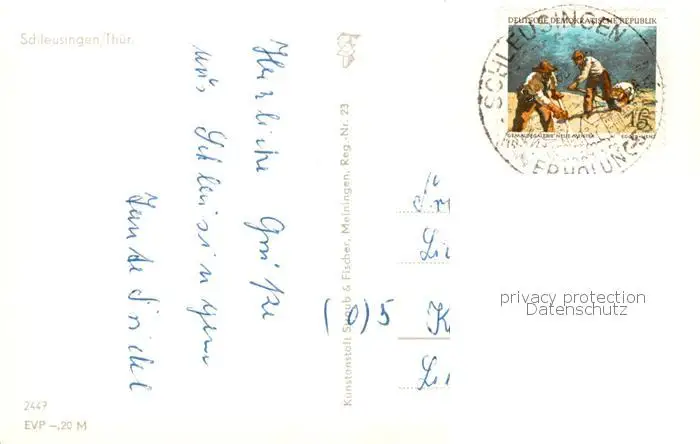 Schleusingen/Thür.
Herzliche Grüße
aus Schleusingen
Tante Friedel
Kunstanstalt Straub & Fischer, Meiningen, Reg.-Nr. 23
2447
EVP -,20 M
DEUTSCHE DEMOKRATISCHE REPUBLIK
15
GEMÄLDEGALERIE NEUE MEISTER
SCHLEUSINGEN
ERHOLUNGS
(0)5
privacy protection
Datenschutz